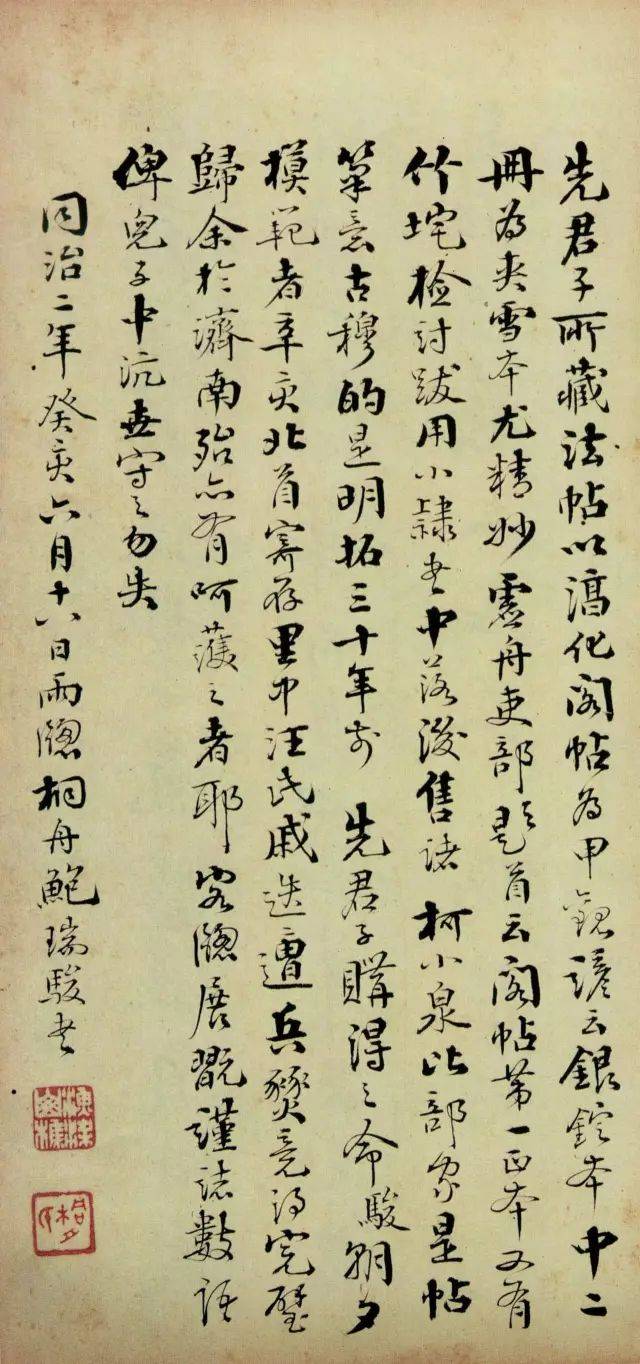 先君子所藏法帖以淳化阁帖為甲觀諺云銀錠本中二
冊為夾雪本尤精妙虛舟吏部題首云閣帖第一正本又有
竹垞檢討跋用小隸書中落後售諸柯小泉比部家是帖
筆意古穆的是明拓三十年前 先君子購得之命駿朝夕
模範者辛亥北首寄存里中汪氏戚迭遭兵燹竟得完璧
歸余於濟南殆亦有呵護之者耶客牕展翫謹誌數語
俾兒子中沆世守之勿失
同治二年癸亥六月十六日雨牕桐舟鮑瑞駿書